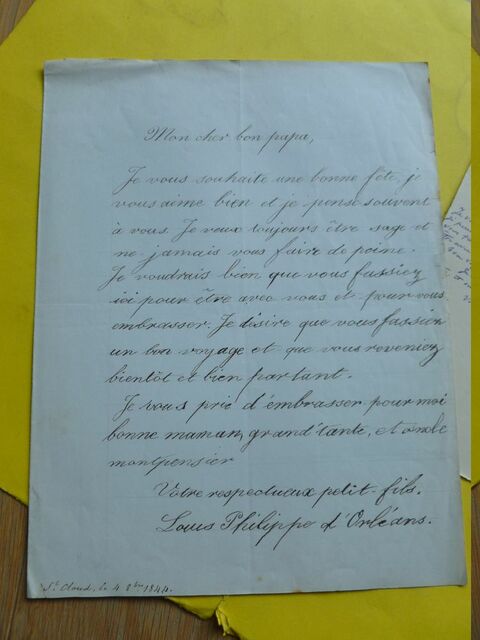 Mon cher bon papa,
Je vous souhaite une bonne fête, je
vous aime bien et je pense souvent
à vous. Je veux toujours être sage et
ne jamais vous faire de peine.
Je voudrais bien que vous fussiez
ici pour être avec vous et pour vous
embrasser. Je désire que vous fassiez
un bon voyage et que vous reveniez
bientôt et bien portant.
Je vous prie d'embrasser pour moi
bonne maman, grand'tante, et oncle
montpensier
Votre respectueux petit-fils.
Louis Philippe d'Orléans.
St Cloud, le 4 8bre 1844.